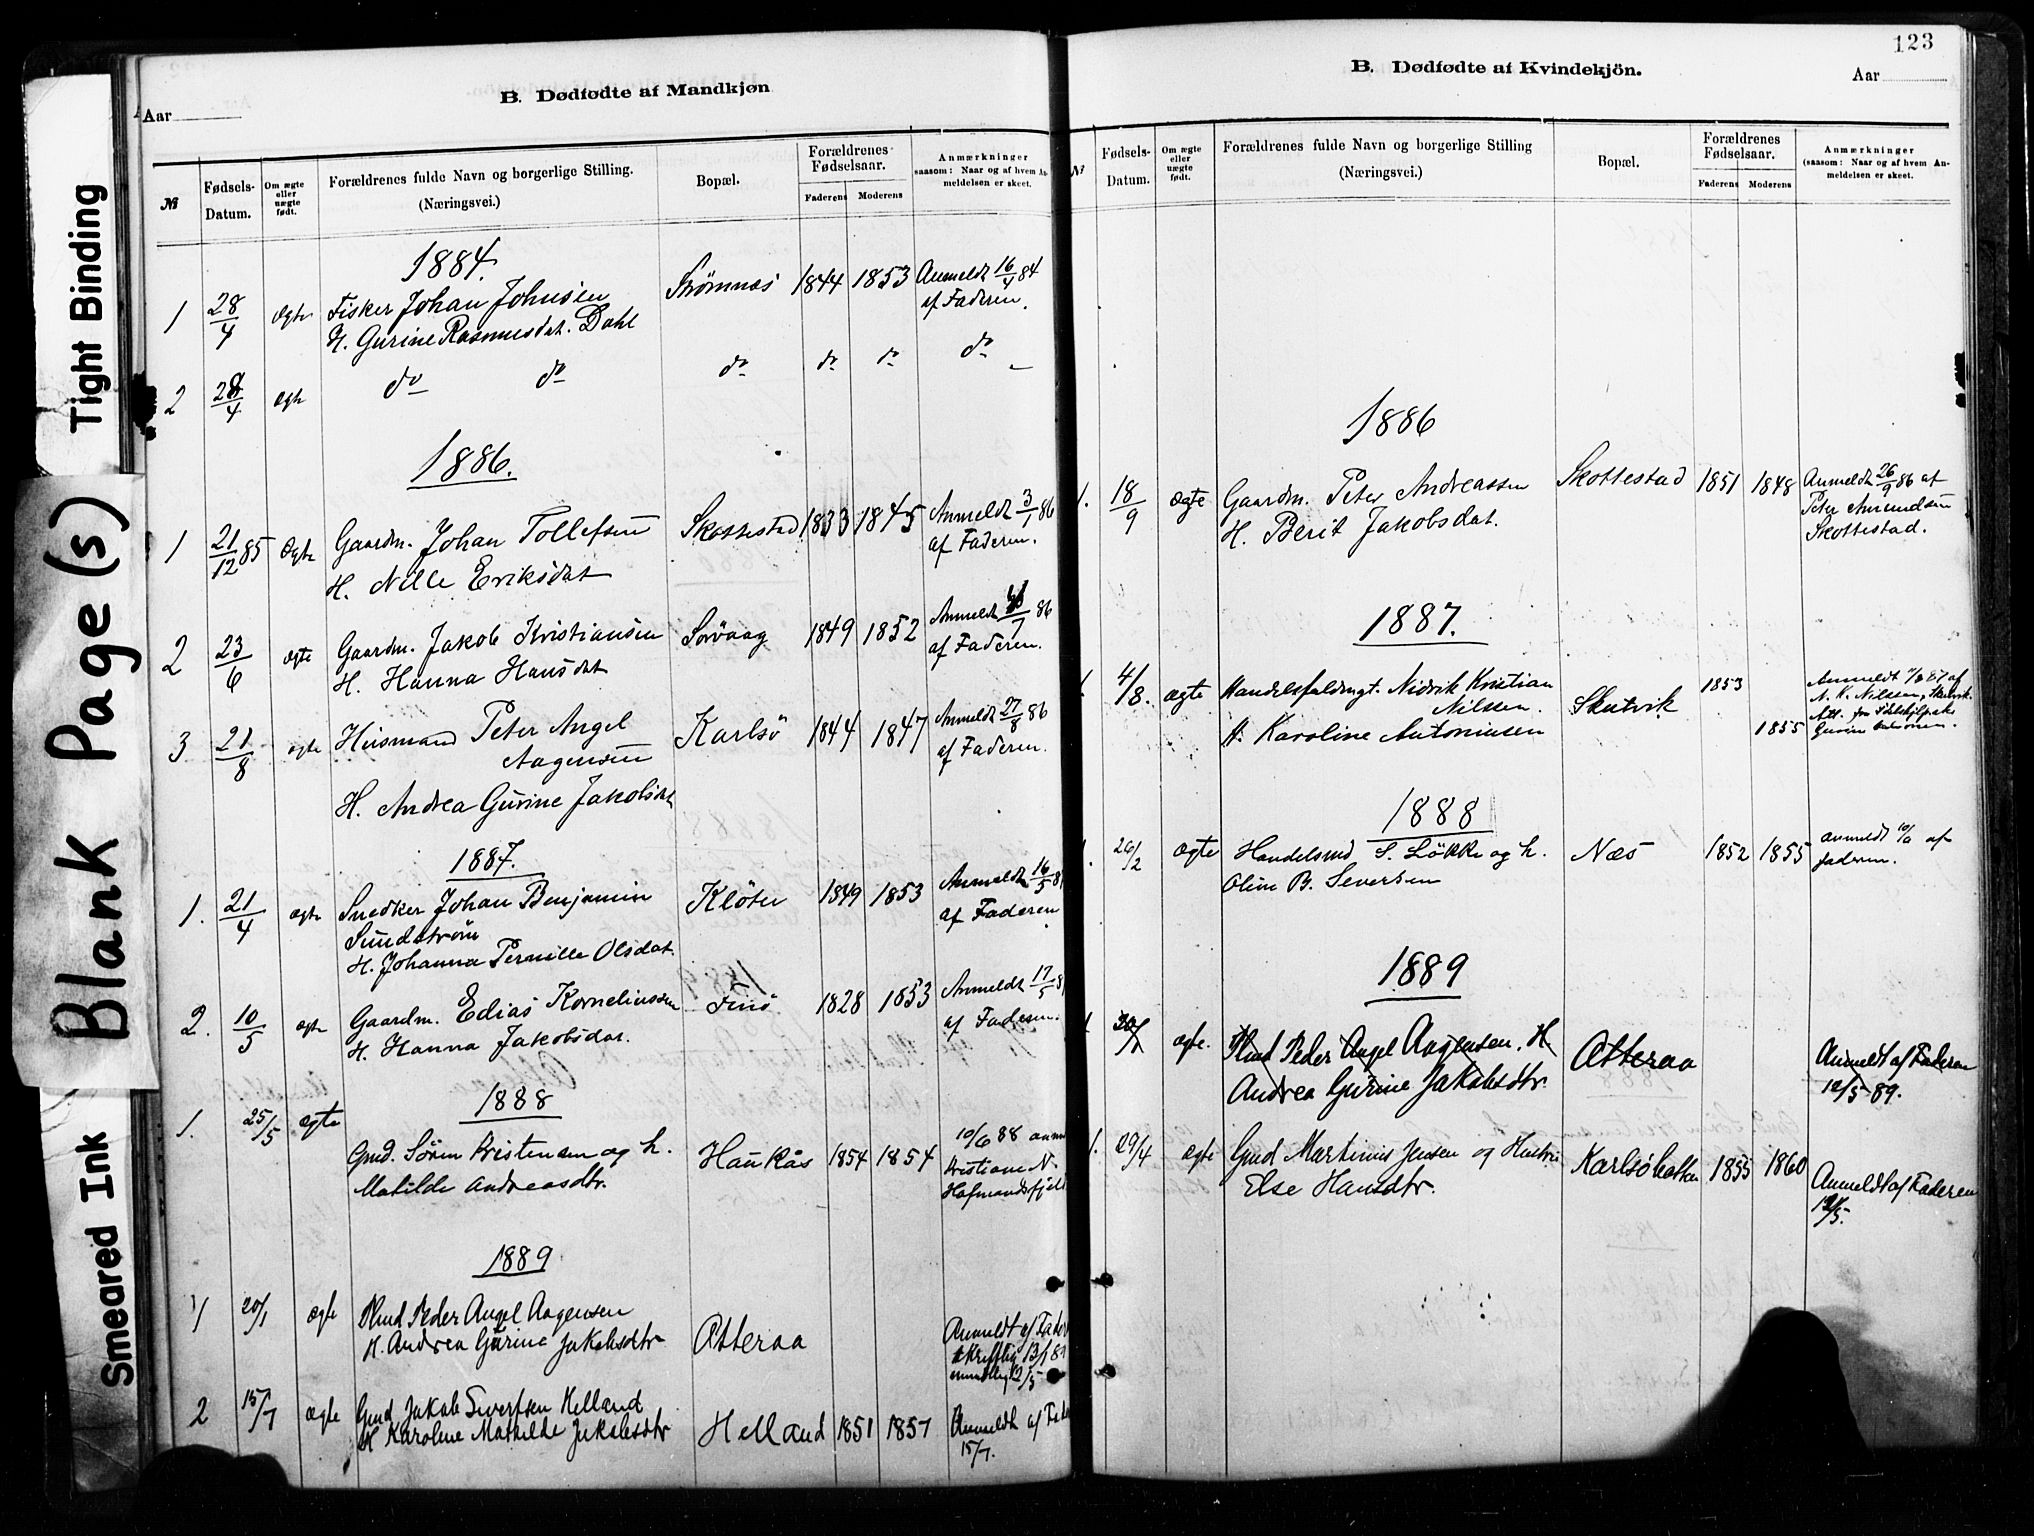 Tight Binding
Blank Page (s)
Smeared Ink
B. Dødfødte af Mandkjøn
Aar
№
Fødsels-Datum.
Om ægte eller uægte født.
Forældrenes fulde Navn og borgerlige Stilling.
(Næringsvei.)
Bopæl.
Forældrenes Fødselsaar.
Faderens
Moderens
Anmærkninger
saasom: Naar og af hvem An-
meldelsen er skeet.
1884.
1 28/4 ægte Fisker Johan Johnsen Strømnæs 1844 1853 Anmeldt 16/4 84
H. Gurine Rasmusdat. Dahl af Faderen.
2 28/4 ægte do do do do do do
1886.
1 21/12 85 Ægte Gaardm. Johan Tollefsen Skottestad 1833 1845 Anmeldt 3/1 86
H. Nille Eriksdat af Faderen.
2 23/6 ægte Gaardm. Jakob Kristiansen Sørvaag 1849 1852 Anmeldt /7 86
H. Hanna Hansdat af Faderen.
3 21/8 ægte Huusmand Peter Angel Karlsö 1844 1847 Anmeldt 27/8 86
Aagensen af Faderen.
H. Andrea Gurine Jakobsdat
1887.
1. 21/4 ægte Snedker Johan Benjamin Kløter 1849 1853 Anmeldt 16/5 8
Sundström af Faderen
H. Johanna Pernille Olsdat.
2. 10/5 ægte Gaardm. Edias Korneliussen Finö 1828 1853 Anmeldt 17/5 8
H. Hanna Jakobsdat. af Faderen.
1888
1. 25/5 ægte Gmd. Sören Kristensen og h. Haukås 1854 1854 10/6 88 anm
Matilde Andreasdtr. Kristiane N-
Hofmandsfjeld
1889
1 20/1 ægte Hmd Peder Angel Aagensen
H. Andrea Gurine Jakobsdtr Ætteraa Anmeldt af Fader
skriftlig 13/1 89
mundtlig 12/5
2 15/7 ægte Gmd Jakob Sivertsen Helland
H Karoline Mathilde Jakobsdtr Helland 1851 1857 Anmeldt af Fade
15/7.
123
B. Dødfødte af Kvindekjön.
Aar
№
Fødsels-Datum.
Om ægte eller uægte født.
Forældrenes fulde Navn og borgerlige Stilling
(Næringsvei.)
Bopæl.
Forældrenes Fødselsaar.
Faderens
Moderens
Anmærkninger
(saasom: Naar og af hvem An-
meldelsen er skeet.
1886
1. 18/9 ægte Gaardm. Peter Andreassen Skottestad 1851 1848 Anmeldt 26/9 86 af
H. Berit Jakobsdat. Peter Amundsen
Skottestad.
1887.
4/8. ægte Handelsfuldmgt. Nidrik Kristian 1853 Anmeldt /8 87 af
Nilssen. Skutvik N. K. Nilssen, Skutvik
H. Karoline Antoniusen 1855 Att. fra
1888
26/2 ægte Handelsmd S. Løkke og h. Næs 1852 1855 anmeldt af
Oline B. Seversen faderen.
1889
20/1 ægte. Hmd Peder Angel Aagensen. H Ætteraa Anmeldt af Faderen
Andrea Gurine Jakobsdtr. 12/5-89.
1. 29/4 ægte Gmd Martinus Jensen og Hustru Karlsöbakken 1855 1860 Anmeldt af Faderen
Else Hansdtr. 12/5.